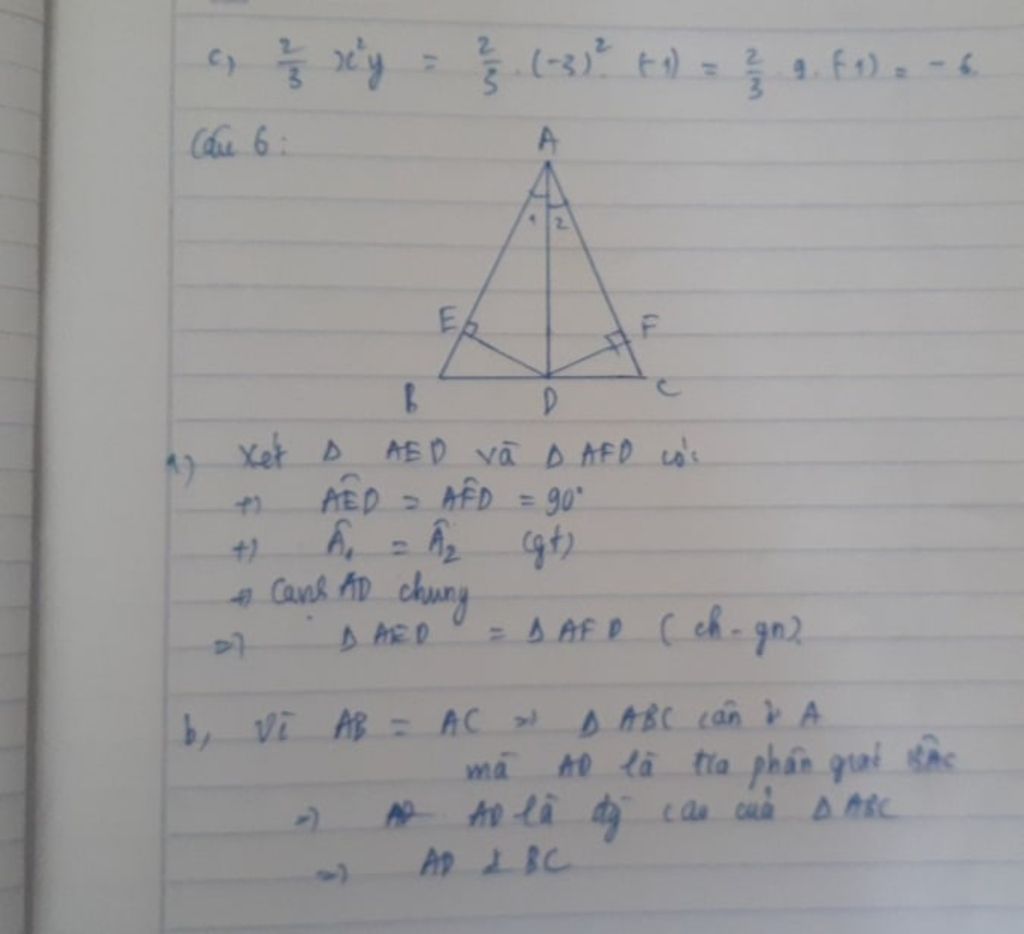 c, 2/3 x²y = 2/3 . (-3)² . (-1) = 2/3 . 9 . (-1) = -6
Câu 6:
A
1 2
E F
B D C
a) Xét Δ AED và Δ AFD có:
+) AÊD = AF̂D = 90°
+) Â₁ = Â₂ (gt)
+) Cạnh AD chung
=> Δ AED = Δ AFD (ch - gn)
b, Vì AB = AC => Δ ABC cân ở A
mà AD là tia phân giác BÂC
=> AD là đg cao của Δ ABC
=> AD ⊥ BC